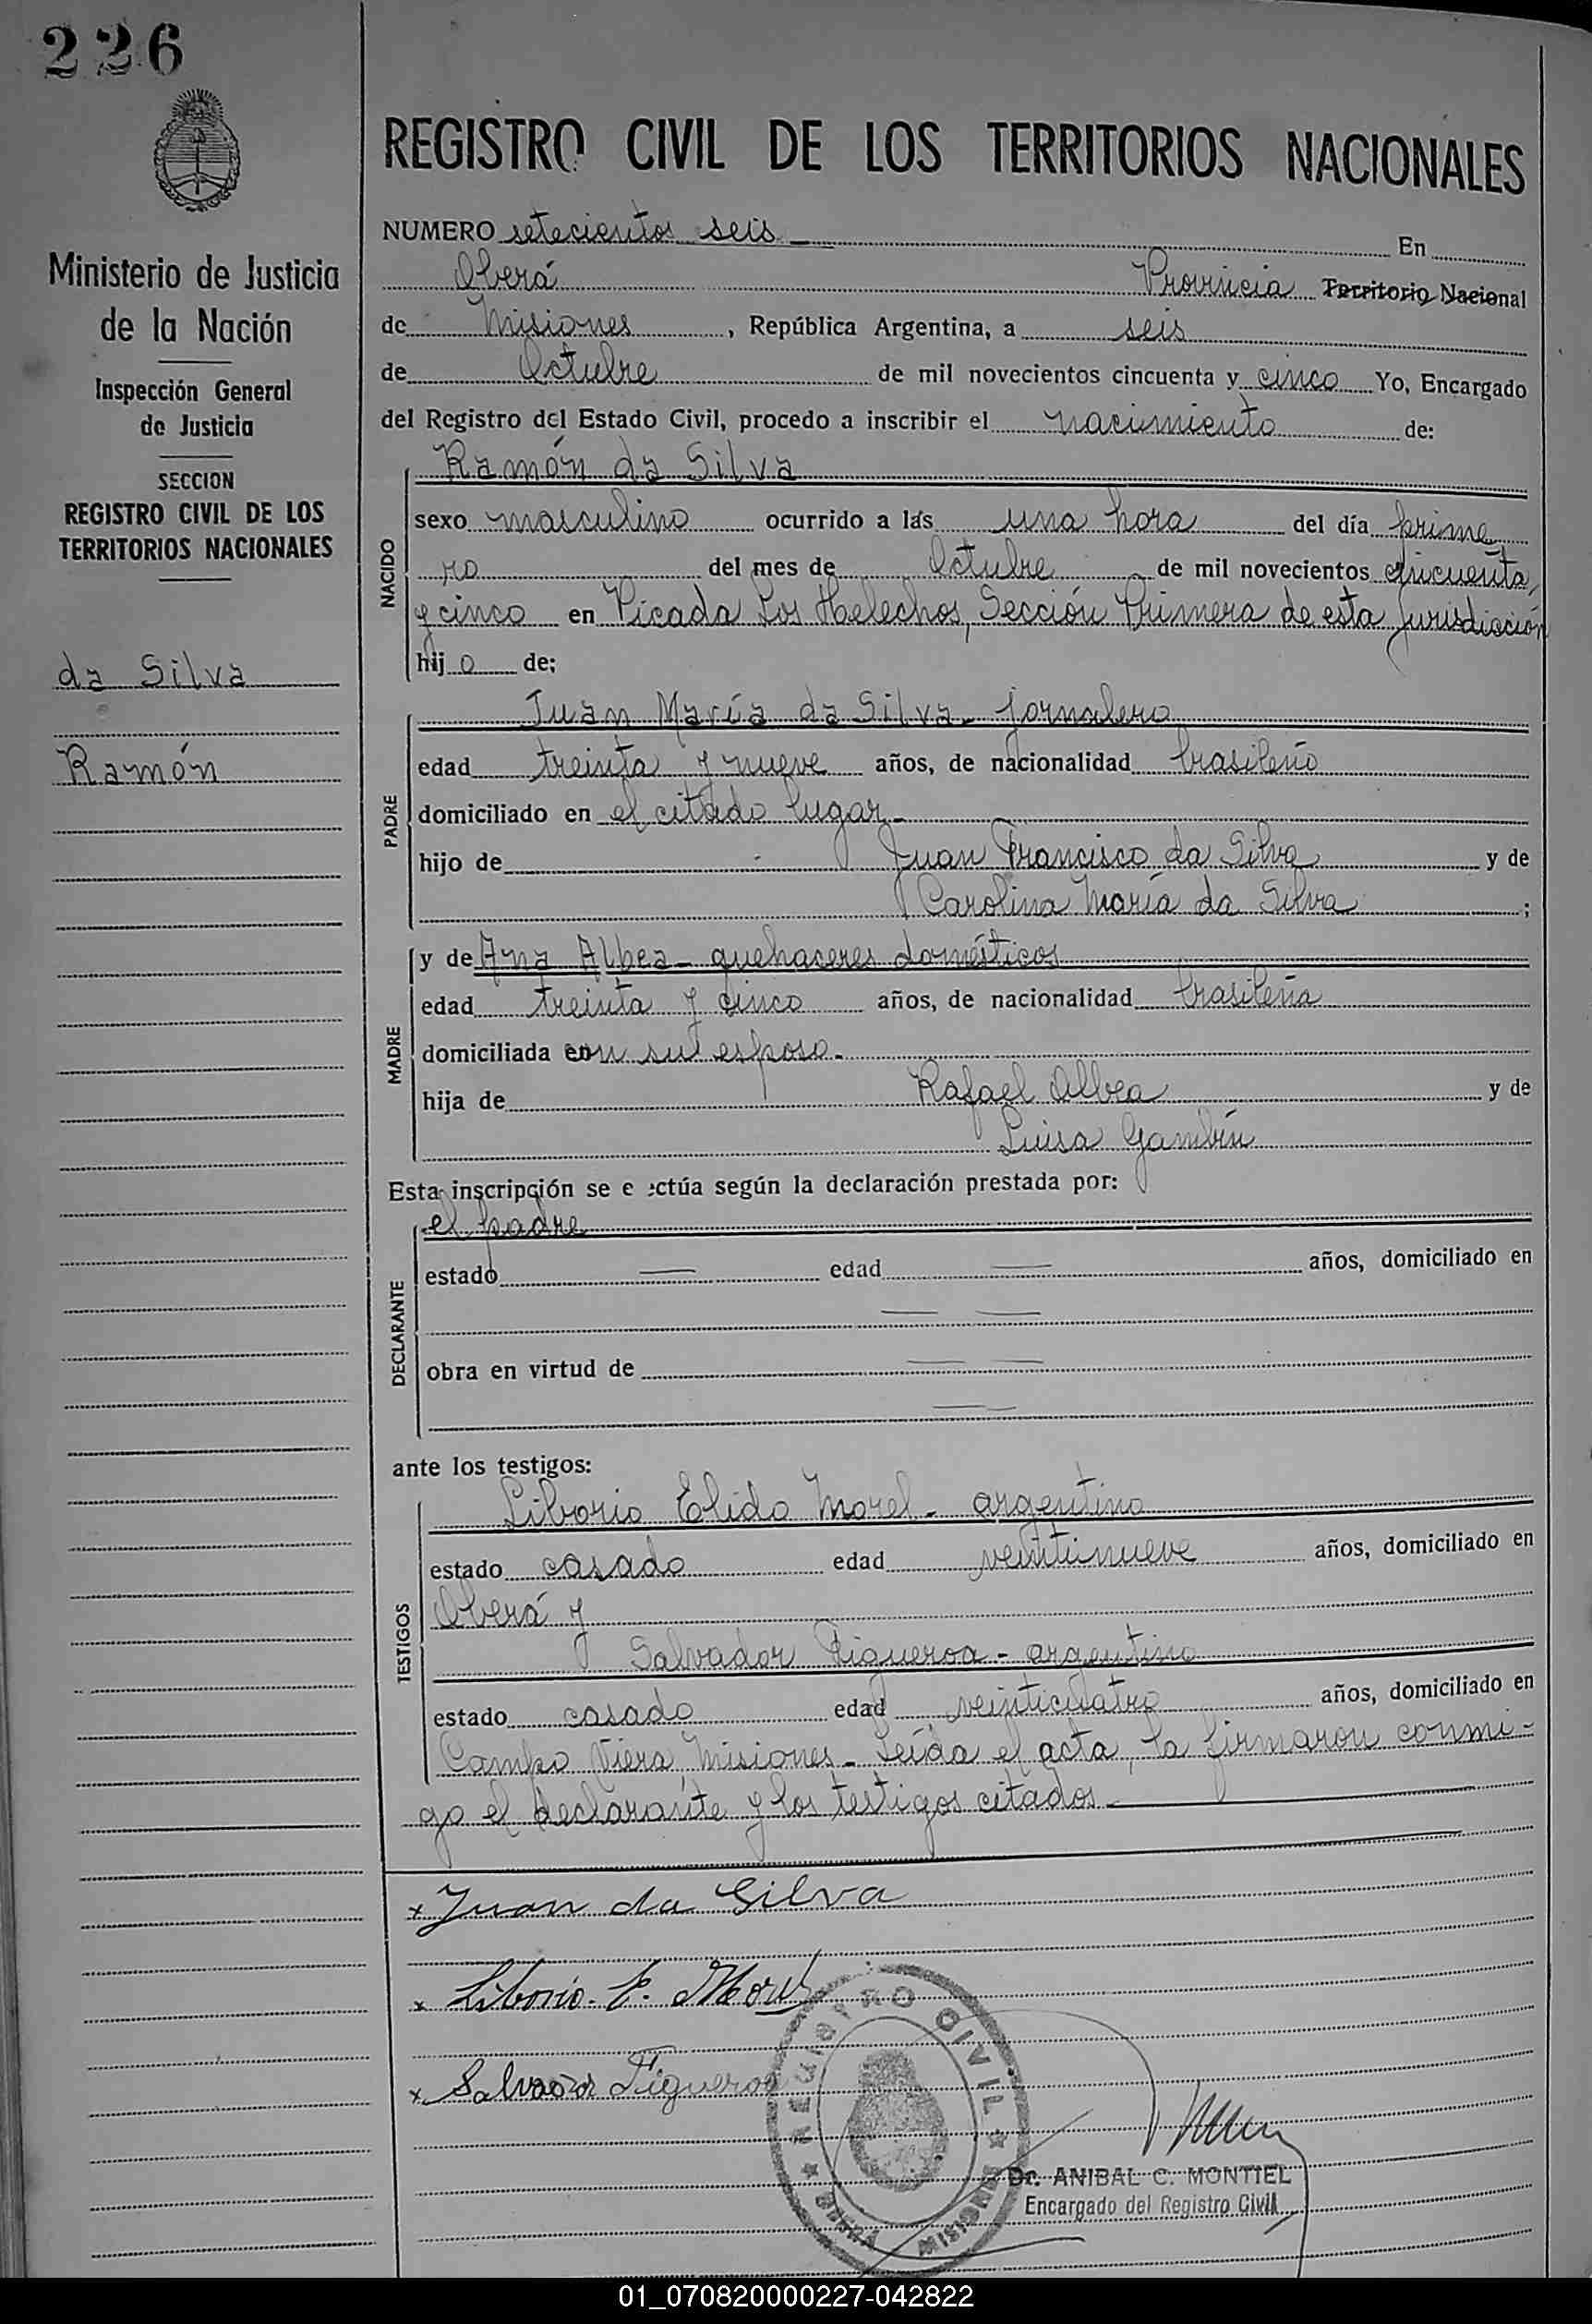 226
Ministerio de Justicia
de la Nación
Inspección General
de Justicia
SECCION
REGISTRO CIVIL DE LOS
TERRITORIOS NACIONALES
da Silva
Ramón
REGISTRO CIVIL DE LOS TERRITORIOS NACIONALES
NUMERO setecientos seis En
Oberá Provincia Territorio Nacional
de Misiones, República Argentina, a seis
de Octubre de mil novecientos cincuenta y cinco Yo, Encargado
del Registro del Estado Civil, procedo a inscribir el nacimiento de:
NACIDO
Ramón da Silva
sexo masculino ocurrido a las una hora del día prime
ro del mes de Octubre de mil novecientos cincuenta
y cinco en Picada Los Helechos, Sección Primera de esta jurisdicción
hijo de;
PADRE
Juan María da Silva - jornalero
edad treinta y nueve años, de nacionalidad brasileño
domiciliado en el citado lugar -
hijo de Juan Francisco da Silva y de
Carolina María da Silva ;
MADRE
y de Ana Albea - quehaceres domésticos
edad treinta y cinco años, de nacionalidad brasileña
domiciliada con su esposo -
hija de Rafael Albea y de
Luisa Gambín
Esta inscripción se e ectúa según la declaración prestada por:
DECLARANTE
el padre
estado — edad — años, domiciliado en
— —
obra en virtud de — —
— —
ante los testigos:
TESTIGOS
Liborio Elido Morel - argentino
estado casado edad veintinueve años, domiciliado en
Oberá y
Salvador Figueroa - argentino
estado casado edad veinticuatro años, domiciliado en
Campo Viera, Misiones - Leída el acta, la firmaron conmi-
go el declarante y los testigos citados -
x Juan da Silva
x Liborio E. Morel
x Salvador Figueroa
REGISTRO CIVIL
OBERA
MISIONES
Dr. ANIBAL C. MONTIEL
Encargado del Registro Civil
01_070820000227-042822